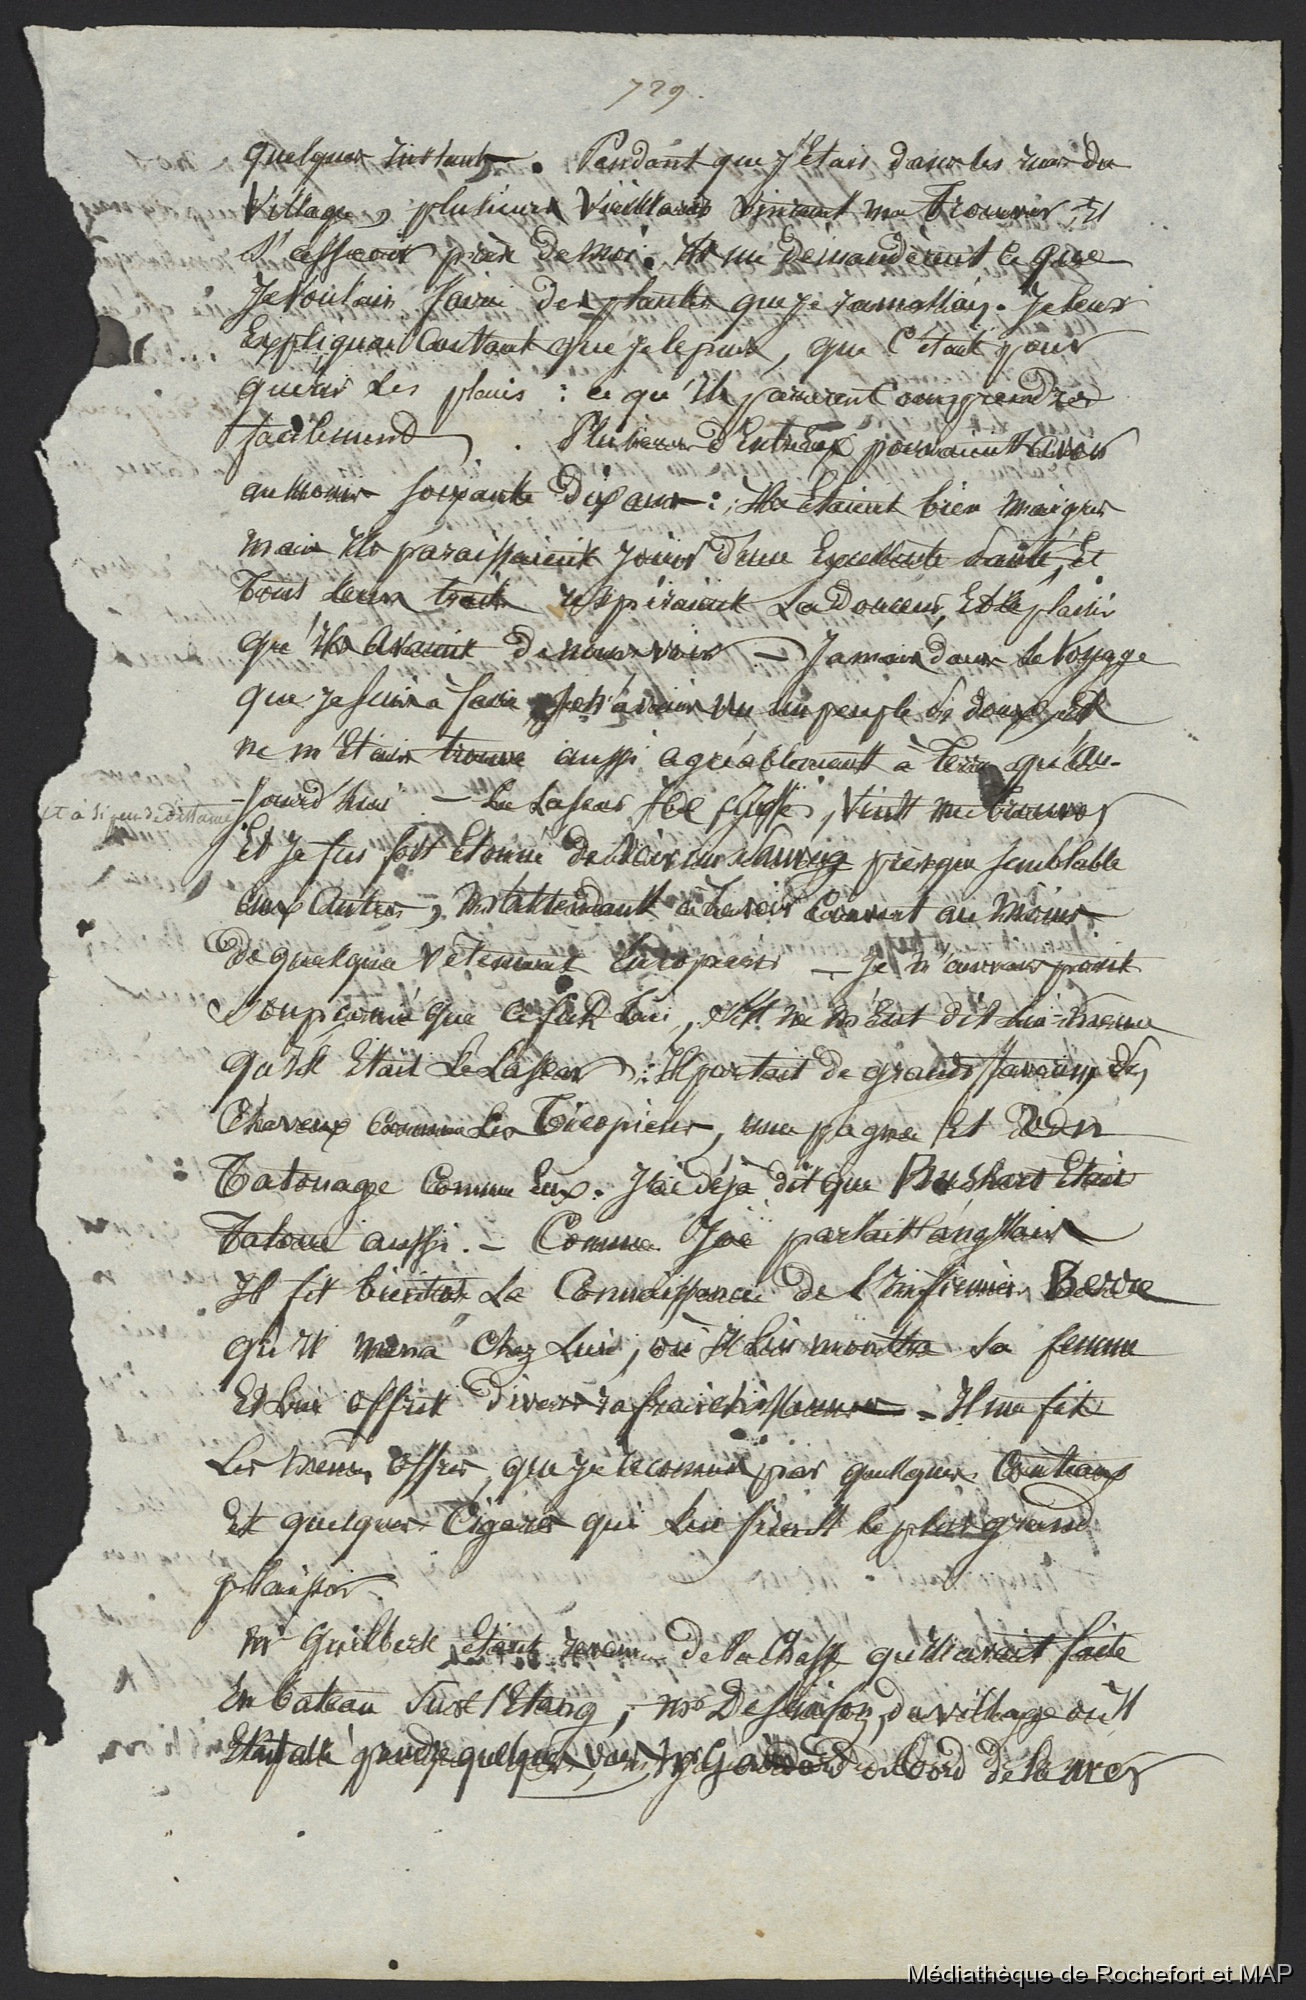 729.
quelques instants. Pendant que j'étais dans les rues du
Village, plusieurs Vieillards vinrent me trouver, Et
s'asseoir près de moi. Ils me demandèrent ce que
Je voulais faire des plantes que je ramassais. Je leur
Expliquai autant que je le pus, que c'était pour
guérir les plaies : ce qu'ils parurent comprendre
facilement. Plusieurs d'Entr'eux pouvaient avoir
au moins soixante dix ans : Ils Etaient bien maigres
mais ils paraissaient jouir d'une Excellente santé, Et
Tous leurs traits respiraient La Douceur, Et le plaisir
qu'ils Avaient de nous voir — Jamais dans le Voyage
que je suis à faire je n'avais vu un peuple si doux, et
ne m'Etais trouvé aussi agréablement à Terre qu'au-
et à si peu de distance
-jourd'hui — Le Lascar Joë, vint me trouver,
Et Je fus fort Etonné de voir un sauvage presque semblable
aux Autres, m'attendant à le voir Couvert au moins
De quelque vêtement Européen — Je n'aurais point
soupçonné que ce fut lui, s'il ne m'eut dit lui-même
qu'il Etait Le Lascar : Il portait de grands
Cheveux comme les Ticopiens, une pagne Et son
Tatouage comme Eux. J'ai déjà dit que Bushart Etait
Tatoué aussi. — Comme Joë parlait anglais
Il fit bientôt La Connaissance de l'infirmier Berre
qu'il mena chez Lui, où il Lui montra sa femme
Et Lui offrit divers rafraichissements — Il me fit
Les mêmes offres, que je reconnus par quelques Couteaux
Et quelques Cigares qui Lui firent le plus grand
plaisir
Mr Guilbert étant revenu De la Chasse qu'il avait faite
En bateau sur l'Etang, Mr Desainson, du village où il
Etait allé prendre quelques vues, Mr Gaimard du bord de la mer